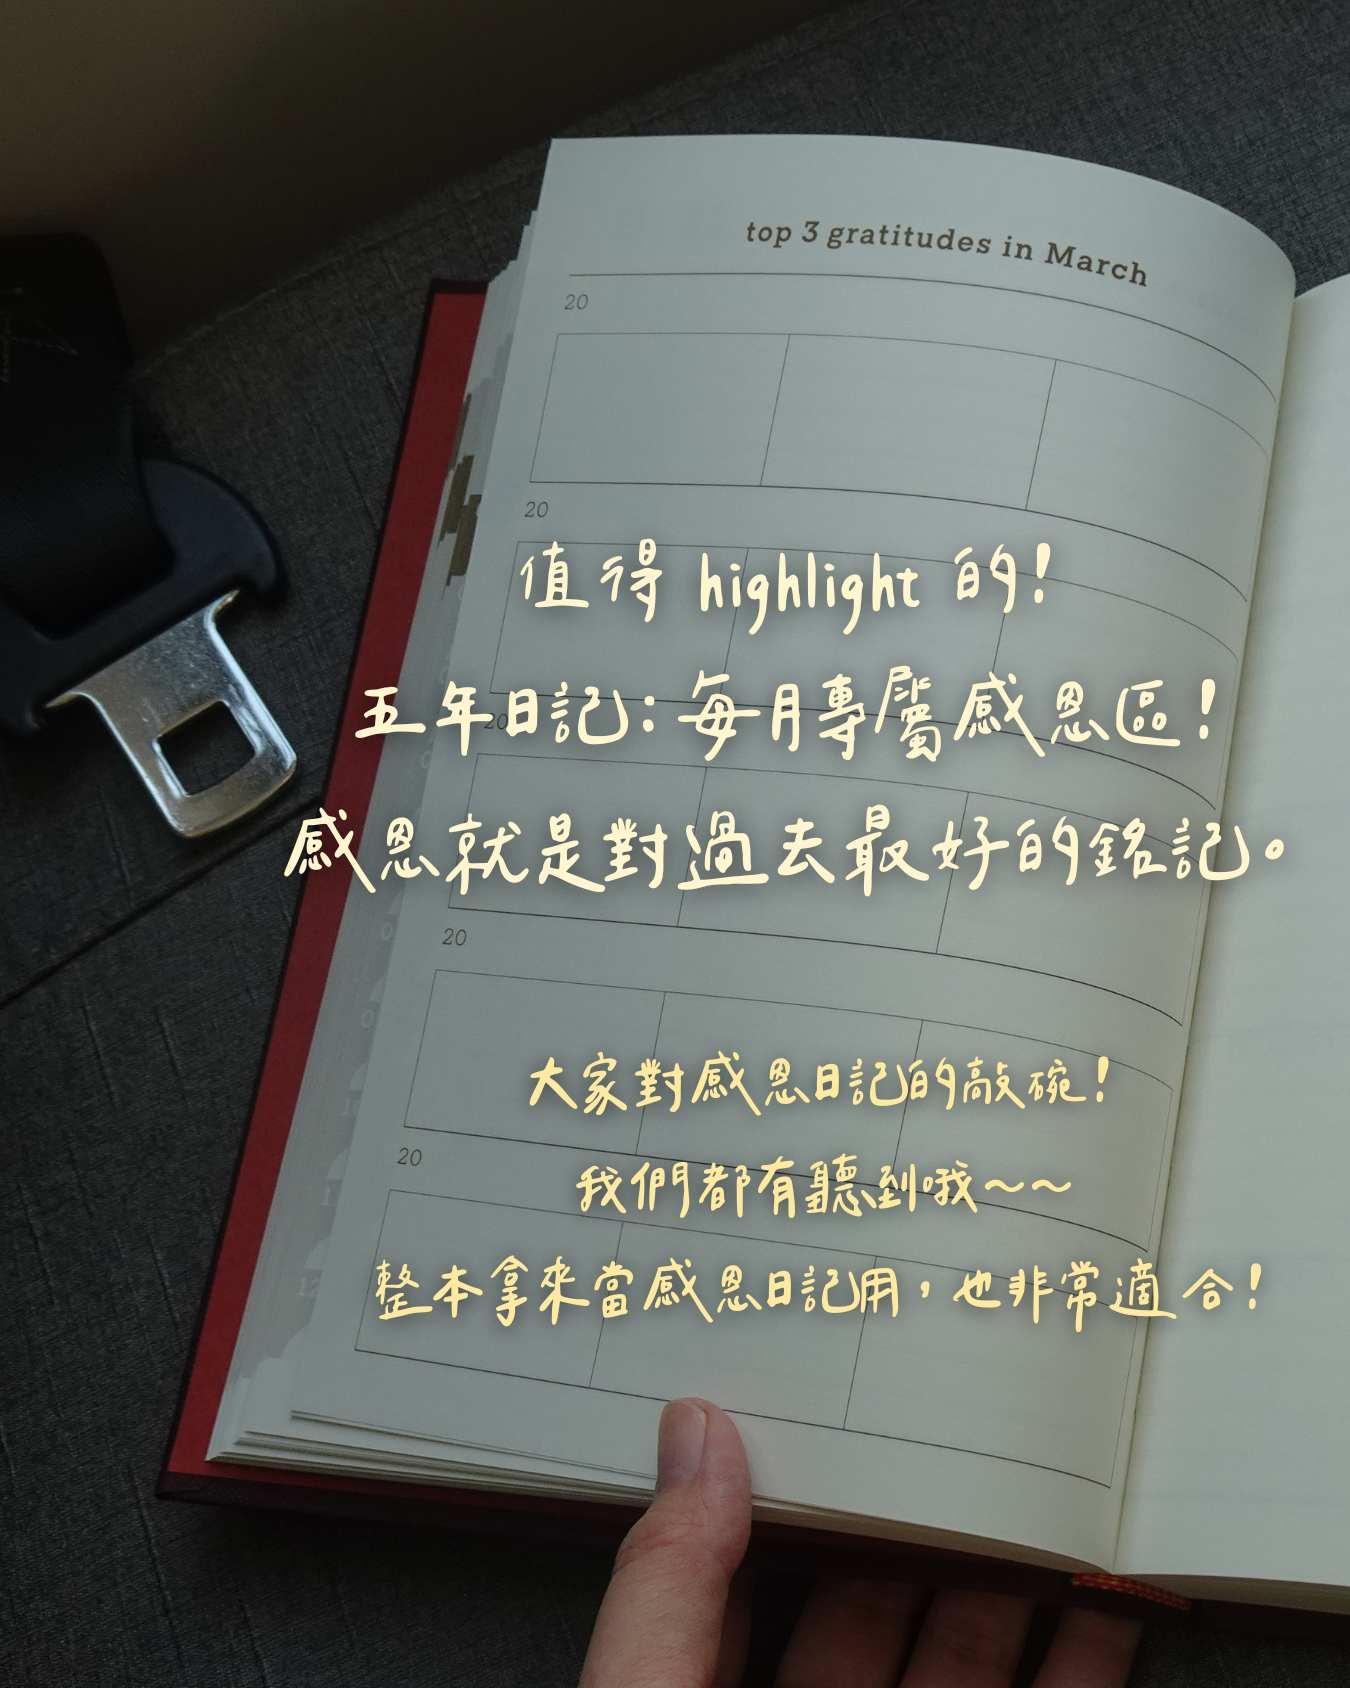 top 3 gratitudes in March
20
20
值得 highlight 的！
20
五年日記：每月專屬感恩區！
感恩就是對過去最好的銘記。
20
大家對感恩日記的敲碗！
20
我們都有聽到哦～～
整本拿來當感恩日記用，也非常適合！